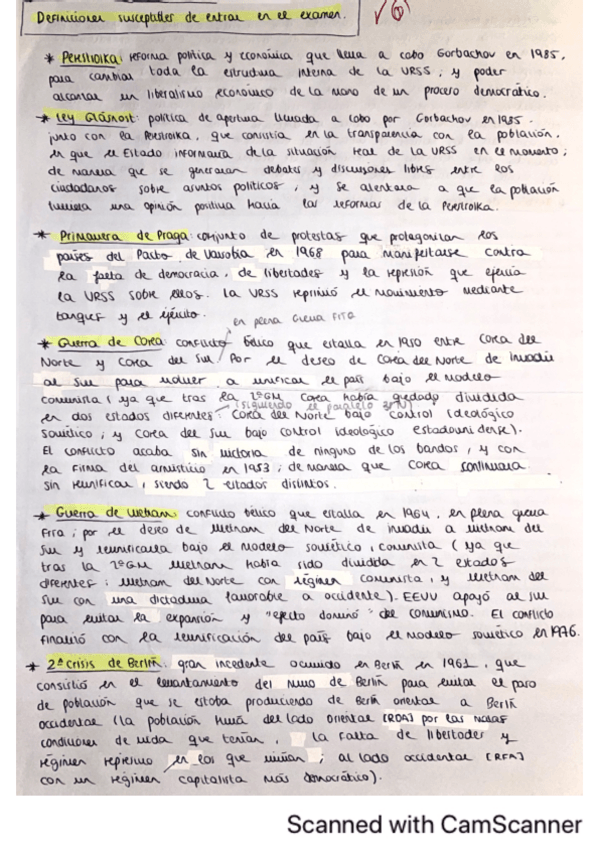 Definiciones susceptibles de entrar en el examen. √ ①
* Perestroika: reforma política y económica que lleva a cabo Gorbachov en 1985,
para cambiar toda la estructura interna de la URSS, y poder
alcanzar un liberalismo económico de la mano de un proceso democrático.
* Ley Glásnost: política de apertura llevada a cabo por Gorbachov en 1985.
junto con la Perestroika, que consistía en la transparencia con la población,
en que el Estado informara de la situación real de la URSS en el momento;
de manera que se generaran debates y discusiones libres entre los
ciudadanos sobre asuntos políticos, y se alentara a que la población
tuviera una opinión positiva hacia las reformas de la Perestroika.
* Primavera de Praga: conjunto de protestas que protagonizan los
países del Pacto de Varsovia en 1968 para manifestarse contra
la falta de democracia, de libertades y la represión que ejercía
la URSS sobre ellos. La URSS reprimió el movimiento mediante
tanques y el ejército.
en plena Guerra Fría
* Guerra de Corea: conflicto bélico que estalla en 1950 entre Corea del
Norte y Corea del Sur / Por el deseo de Corea del Norte de invadir
al Sur para volver a unificar el país bajo el modelo
comunista (ya que tras la 2ªGM Corea había quedado dividida
(siguiendo el paralelo 38N)
en dos estados diferentes: Corea del Norte bajo control ideológico
soviético; y Corea del Sur bajo control ideológico estadounidense).
El conflicto acaba sin victoria de ninguno de los bandos, y con
la firma del armisticio en 1953; de manera que Corea continuara
sin reunificar, siendo 2 estados distintos.
* Guerra de Vietnam: conflicto bélico que estalla en 1964, en plena guerra
fría; por el deseo de Vietnam del Norte de invadir a Vietnam del
Sur y reunificarla bajo el modelo soviético, comunista (ya que
tras la 2ªGM Vietnam había sido dividida en 2 estados
diferentes: Vietnam del Norte con régimen comunista, y Vietnam del
Sur con una dictadura favorable a occidente). EEUU apoyó al sur
para evitar la expansión y "efecto dominó" del comunismo. El conflicto
finalizó con la reunificación del país bajo el modelo soviético en 1976.
* 2ª Crisis de Berlín: gran incidente ocurrido en Berlín en 1961, que
consistió en el levantamiento del muro de Berlín para evitar el paso
de población que se estaba produciendo de Berlín oriental a Berlín
occidental (la población huía del lado oriental [RDA] por las malas
condiciones de vida que tenían, la falta de libertades y
régimen represivo en los que vivían; al lado occidental [RFA]
con un régimen capitalista más democrático).
Scanned with CamScanner